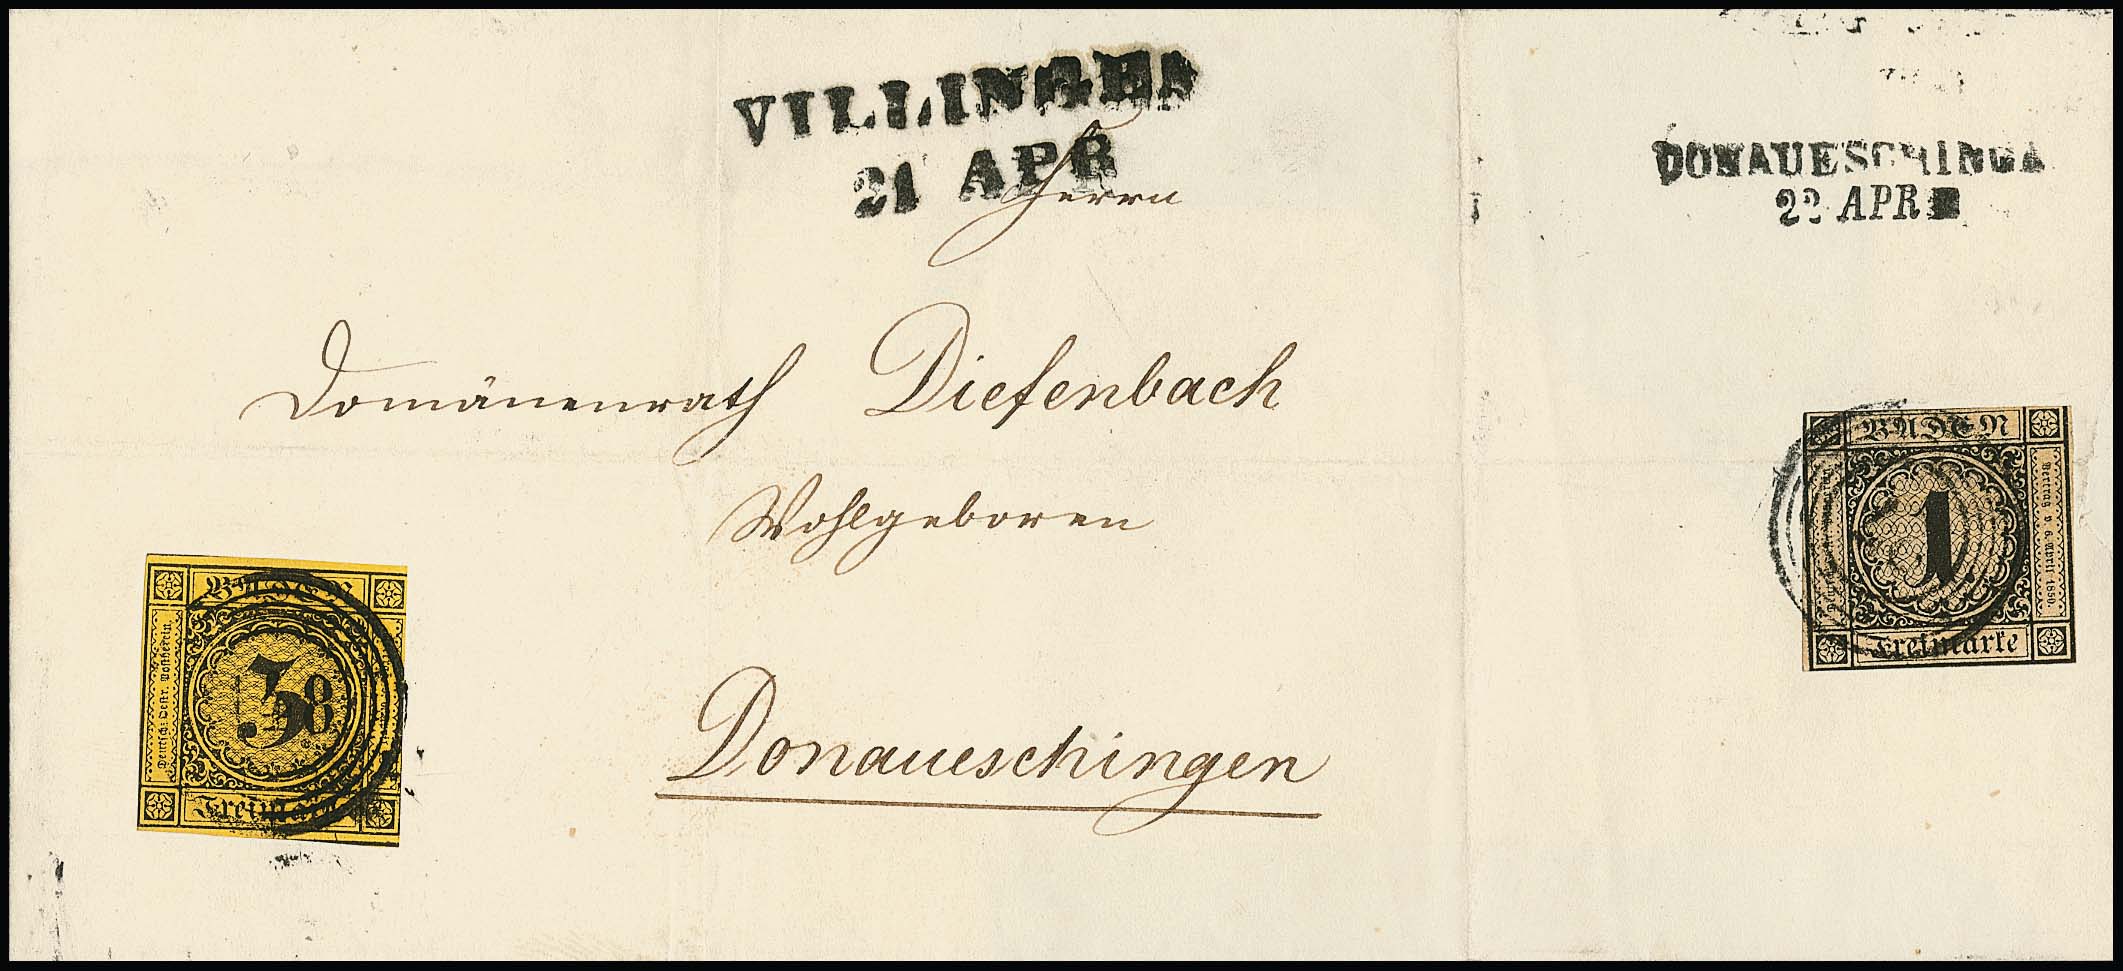 VILLINGEN
21 APR
Herrn
Domänenrath Diefenbach
Wohlgeboren
Donaueschingen
DONAUESCHINGEN
22 APR
BADEN
Deutsch: Oestr. Postverein.
3
Freimarke
BADEN
Vertrag v. 6. April 1850.
1
Freimarke